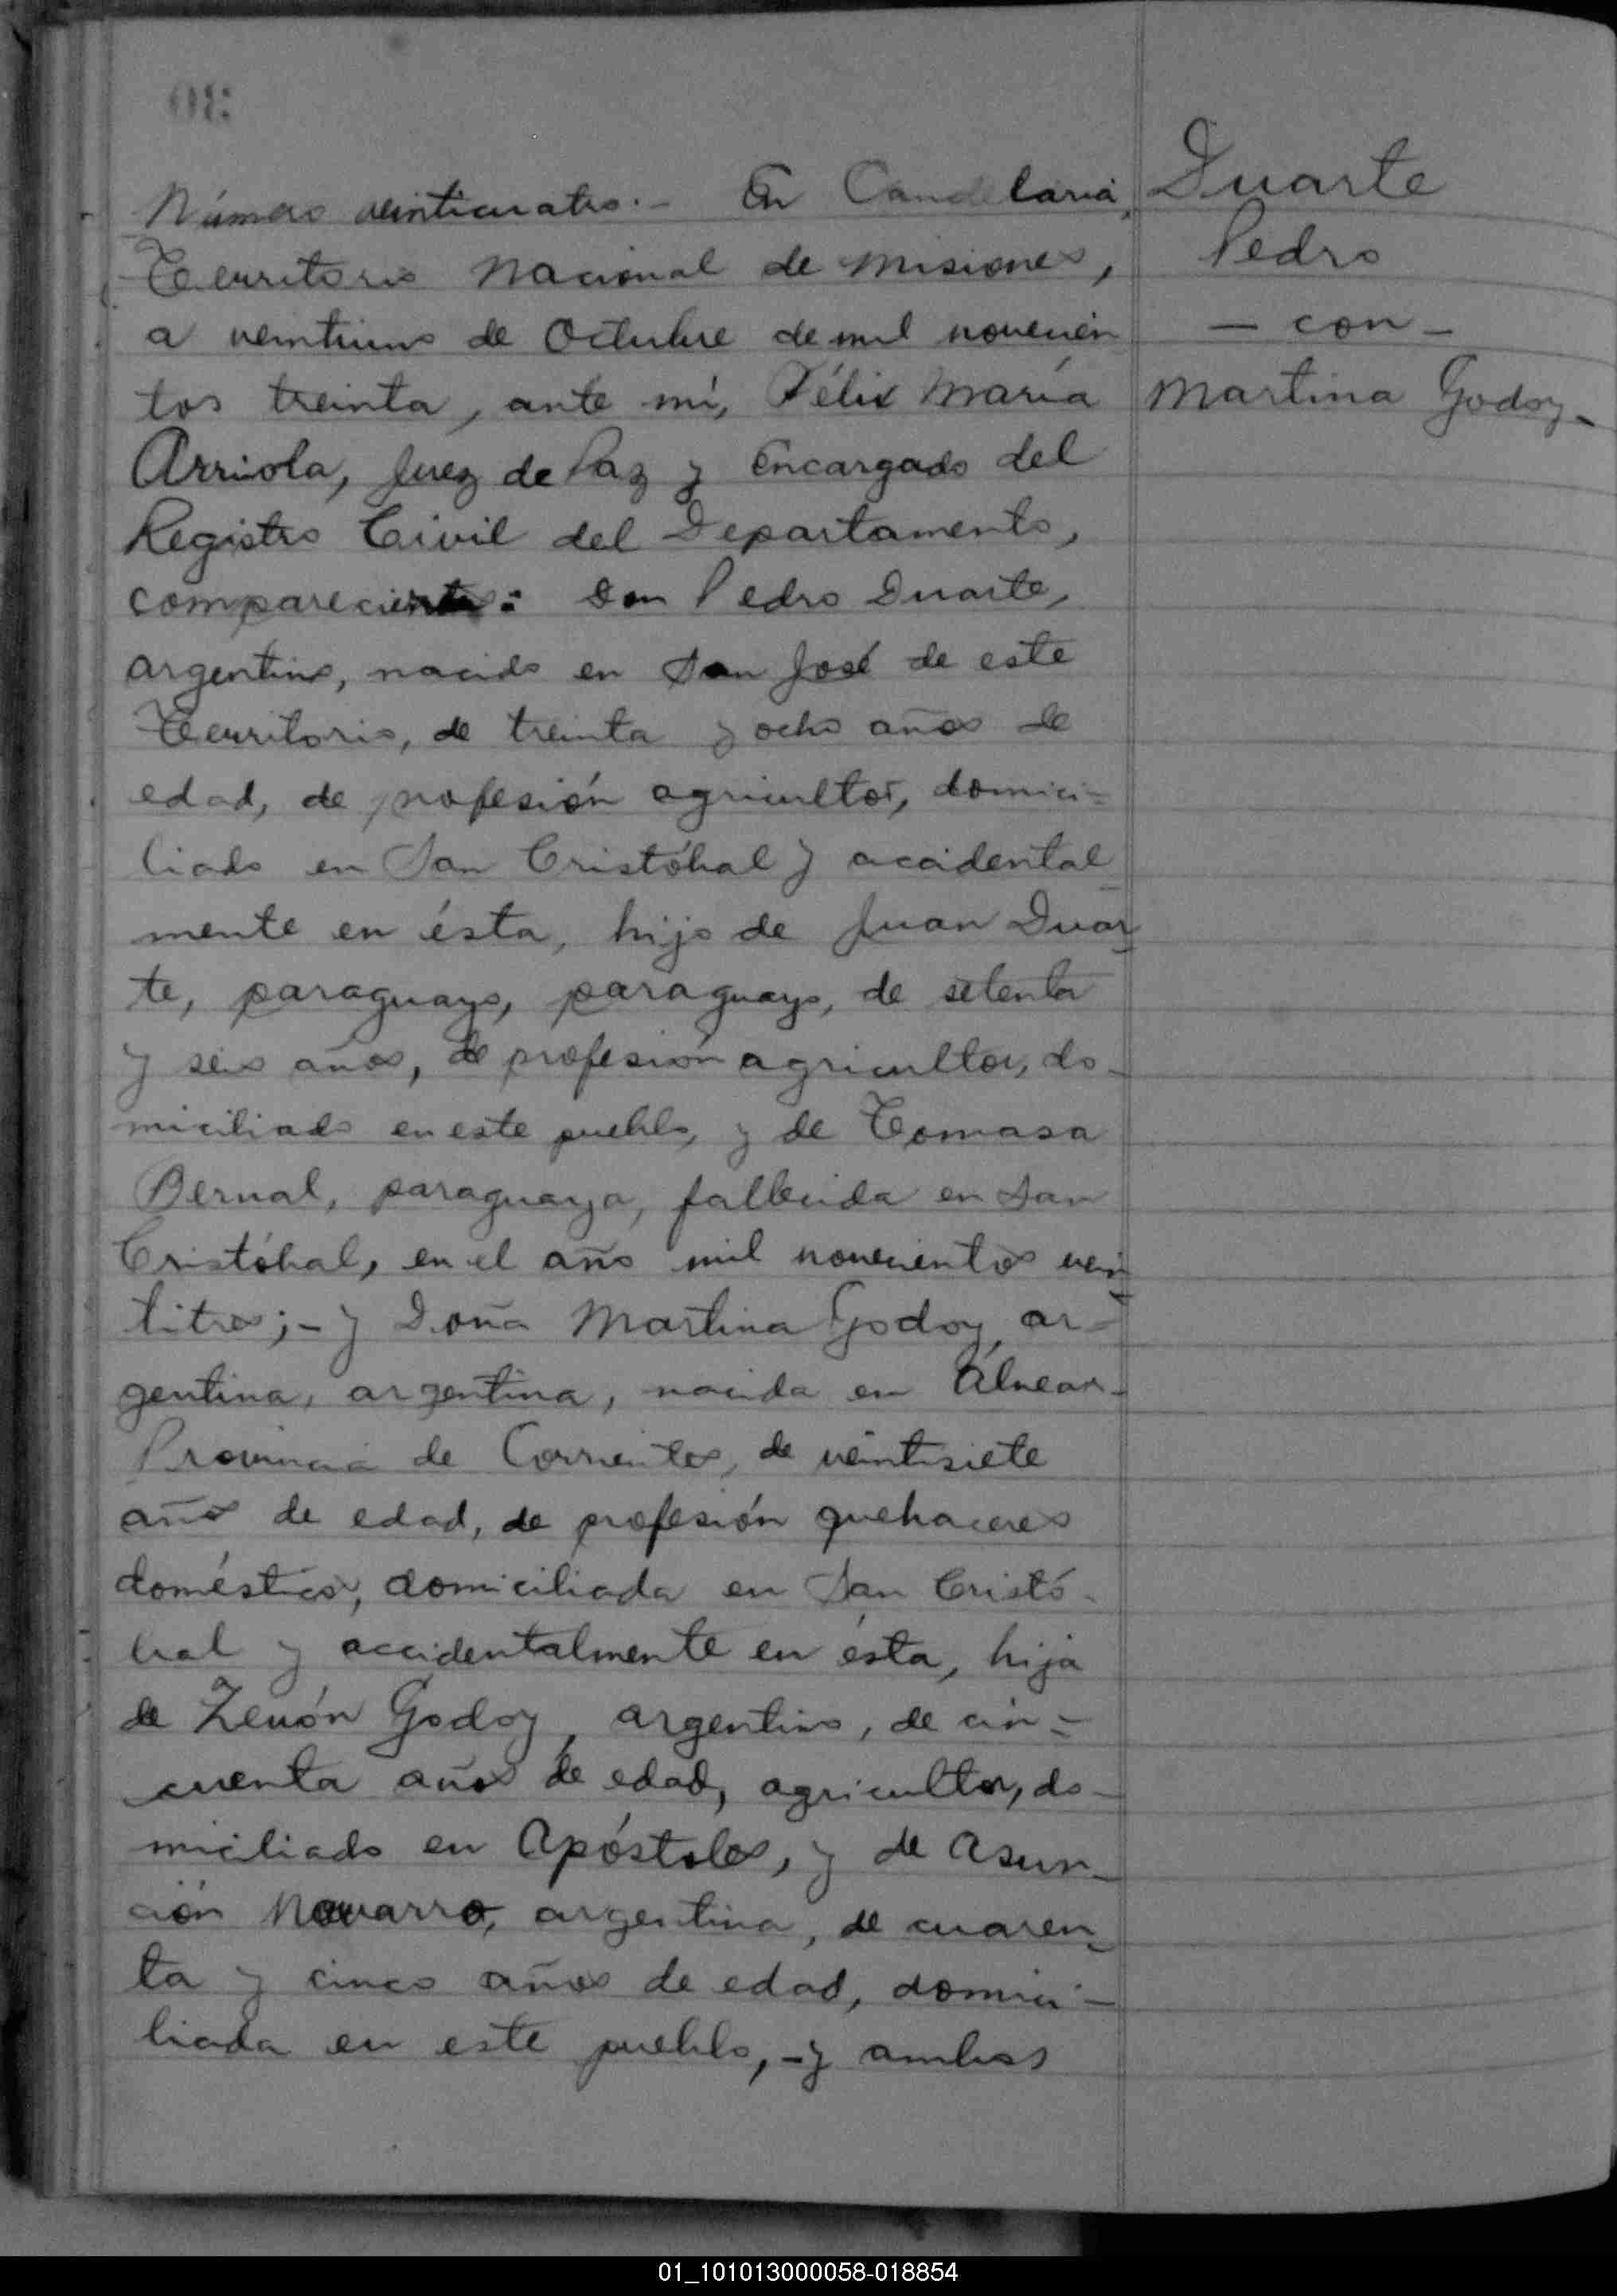 Número veinticuatro.- En Candelaria,
Territorio Nacional de Misiones,
a veintiuno de Octubre de mil novecien
tos treinta, ante mí, Félix María
Arriola, Juez de Paz y Encargado del
Registro Civil del Departamento,
comparecientes: Don Pedro Duarte,
argentino, nacido en San José de este
Territorio, de treinta y ocho años de
edad, de profesión agricultor, domici-
liado en San Cristóbal y accidental
mente en ésta, hijo de Juan Duar-
te, paraguayo, paraguayo, de setenta
y seis años, de profesión agricultor, do-
miciliado en este pueblo, y de Tomasa
Bernal, paraguaya, fallecida en San
Cristóbal, en el año mil novecientos vein-
titres;- y Doña Martina Godoy, ar-
gentina, argentina, nacida en Alvear-
Provincia de Corrientes, de veintisiete
años de edad, de profesión quehaceres
domésticos, domiciliada en San Cristó-
bal y accidentalmente en ésta, hija
de Zenón Godoy, argentino, de cin-
cuenta años de edad, agricultor, do-
miciliado en Apóstoles, y de Asun-
ción Navarro, argentina, de cuaren-
ta y cinco años de edad, domici-
liada en este pueblo,-y ambos
Duarte
Pedro
- con -
Martina Godoy-
01_101013000058-018854